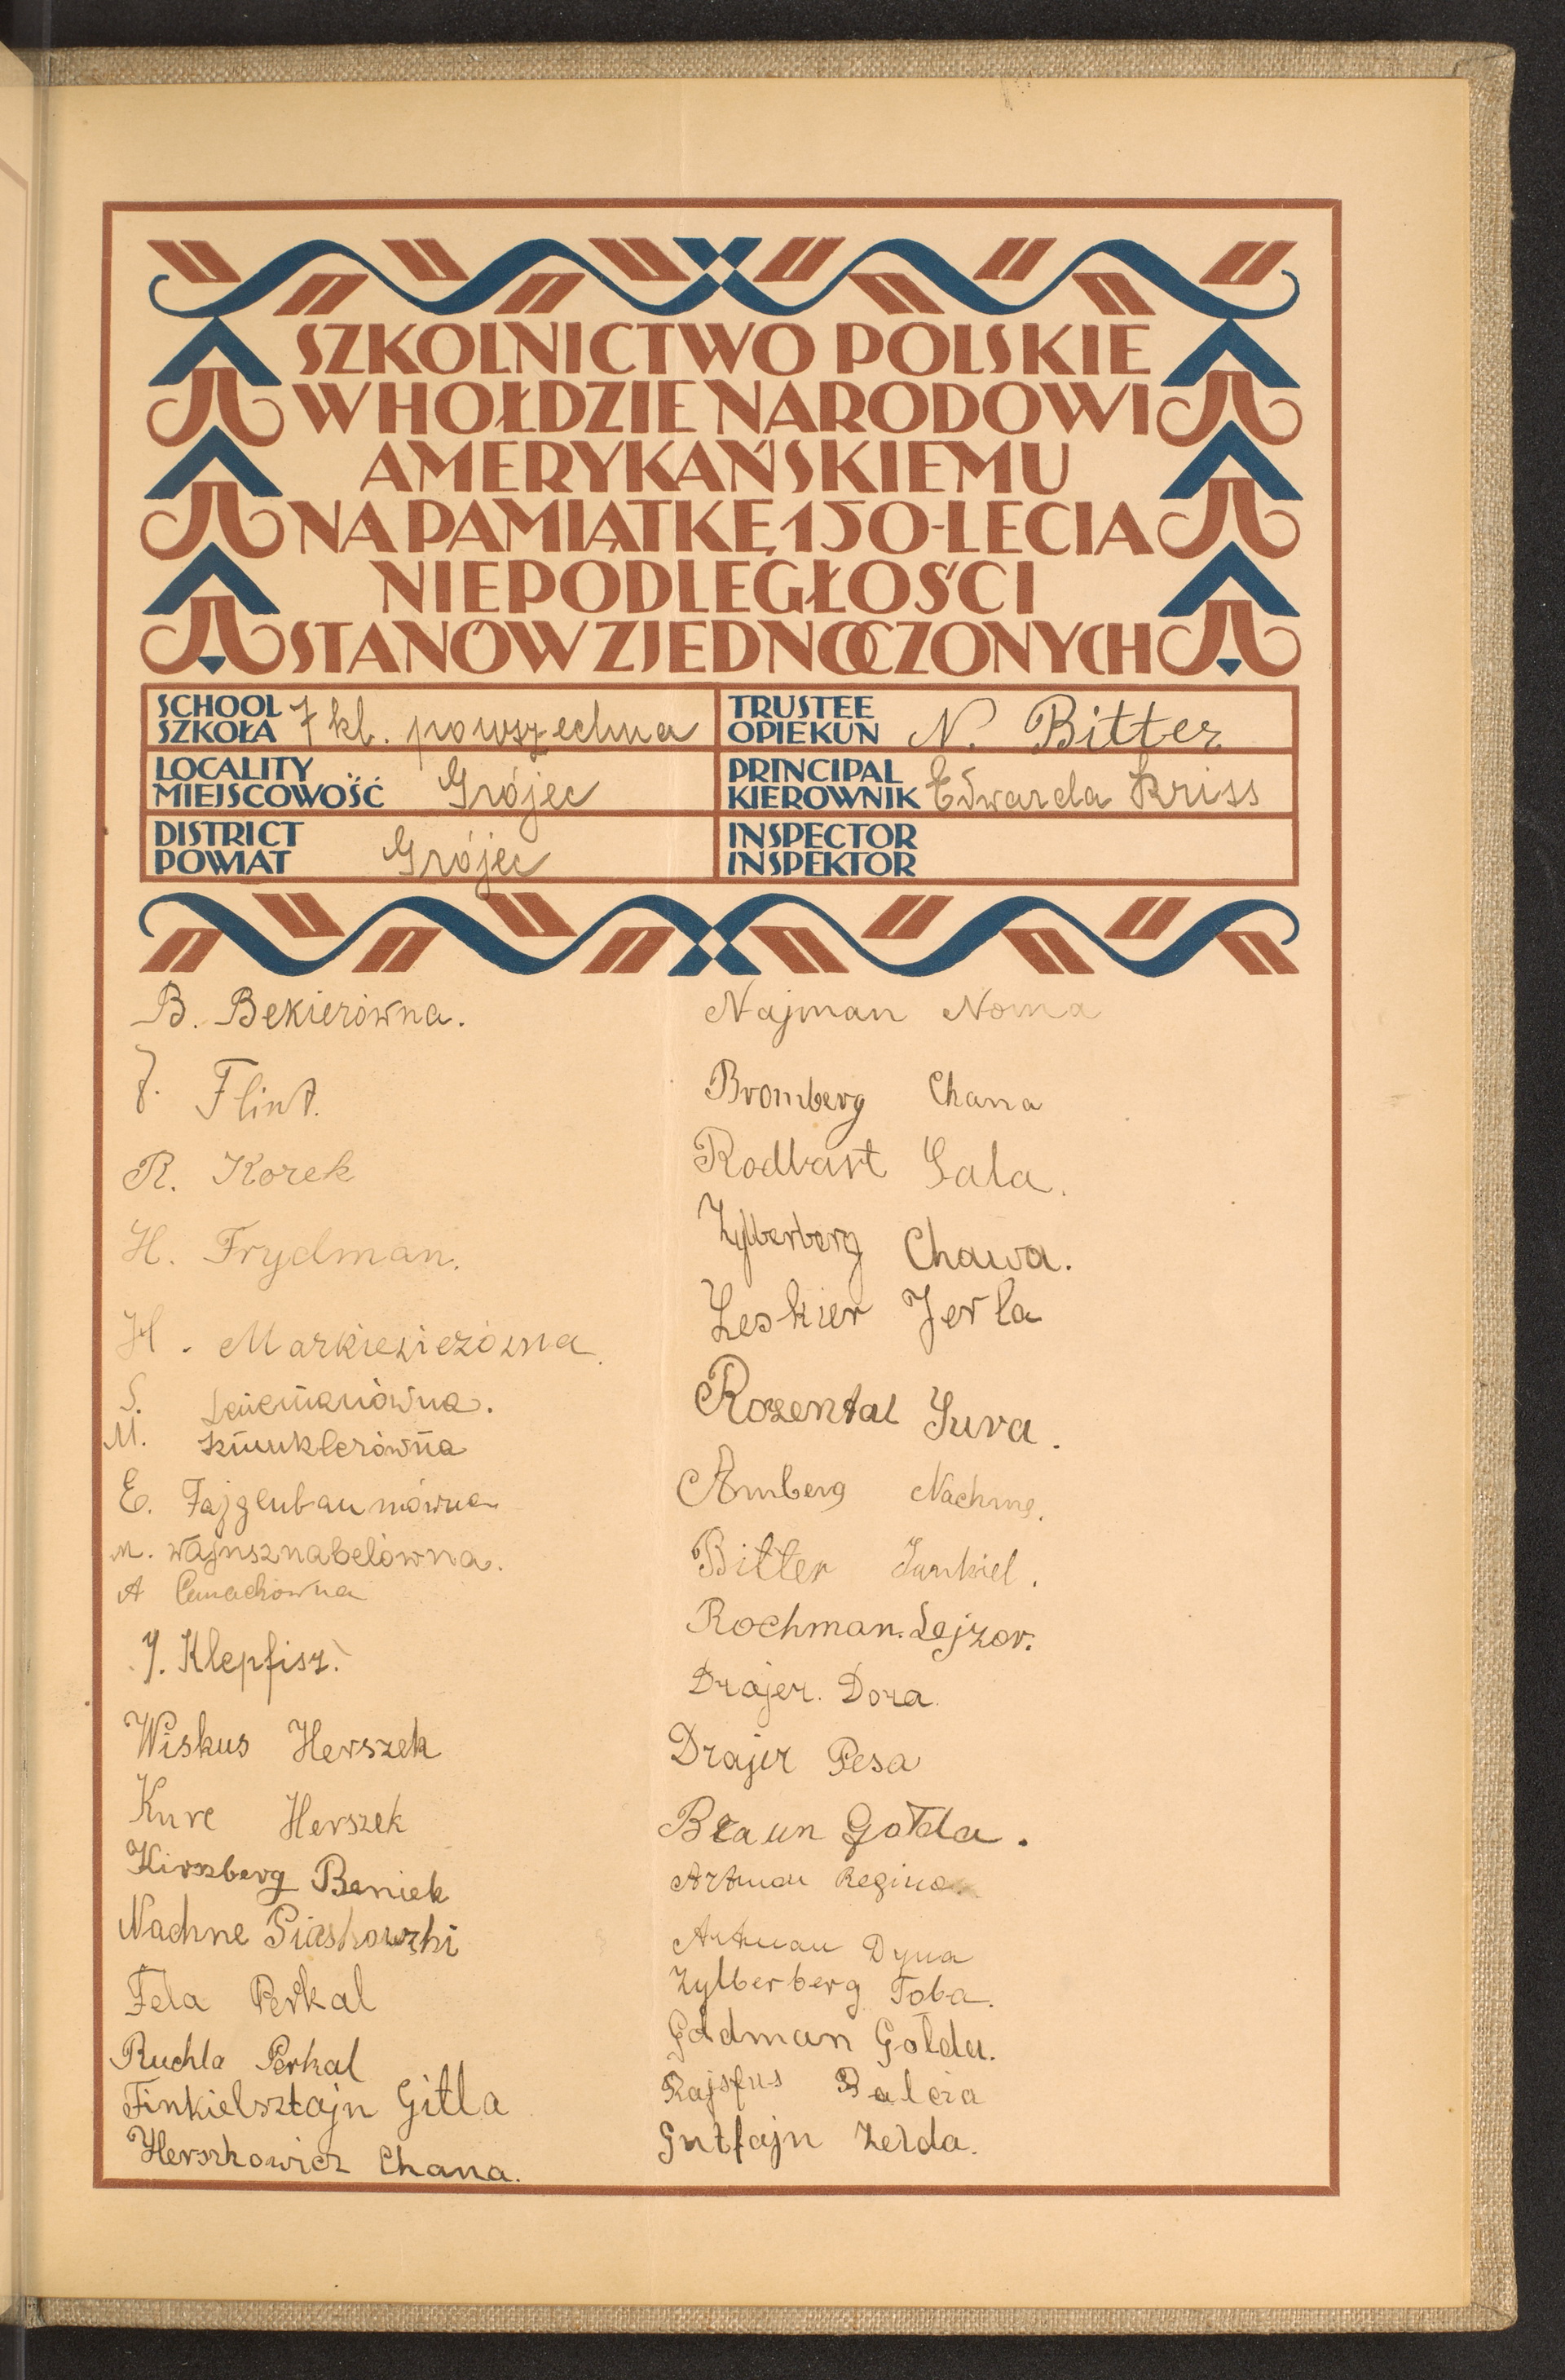 SZKOLNICTWO POLSKIE
W HOŁDZIE NARODOWI
AMERYKAŃSKIEMU
NA PAMIĄTKĘ 150-LECIA
NIEPODLEGŁOŚCI
STANÓW ZJEDNOCZONYCH
SCHOOL
SZKOŁA 7 kl. powszechna
TRUSTEE
OPIEKUN N. Bitter
LOCALITY
MIEJSCOWOŚĆ Grójec
PRINCIPAL
KIEROWNIK Edwarda Kriss
DISTRICT
POWIAT Grójec
INSPECTOR
INSPEKTOR
B. Bekierówna.
J. Flint.
R. Korek
H. Frydman.
H.
S.
M.
E. Fajgenbaumówna
M. Wajnsznabelówna.
A
J. Klepfisz.
Wiskus Herszek
Kurc Herszek
Kirszberg Beniek
Nachne Piaskowski
Fela Perkal
Ruchla Perkal
Finkielsztajn Gitla
Herszkowicz Chana.
Najman Noma
Bromberg Chana
Rodbart Sala.
Zylberberg Chawa.
Leskier Jerla
Rozental Sura.
Amberg
Bitter Jankiel.
Rochman. Lejzor.
Drajer. Dora
Drajer Pesa
Braun Gołda.
Artman Regina
Artman Dyna
Zylberberg Toba.
Goldman Gołda.
Rajsfus Balcia
Gutfajn Zelda.